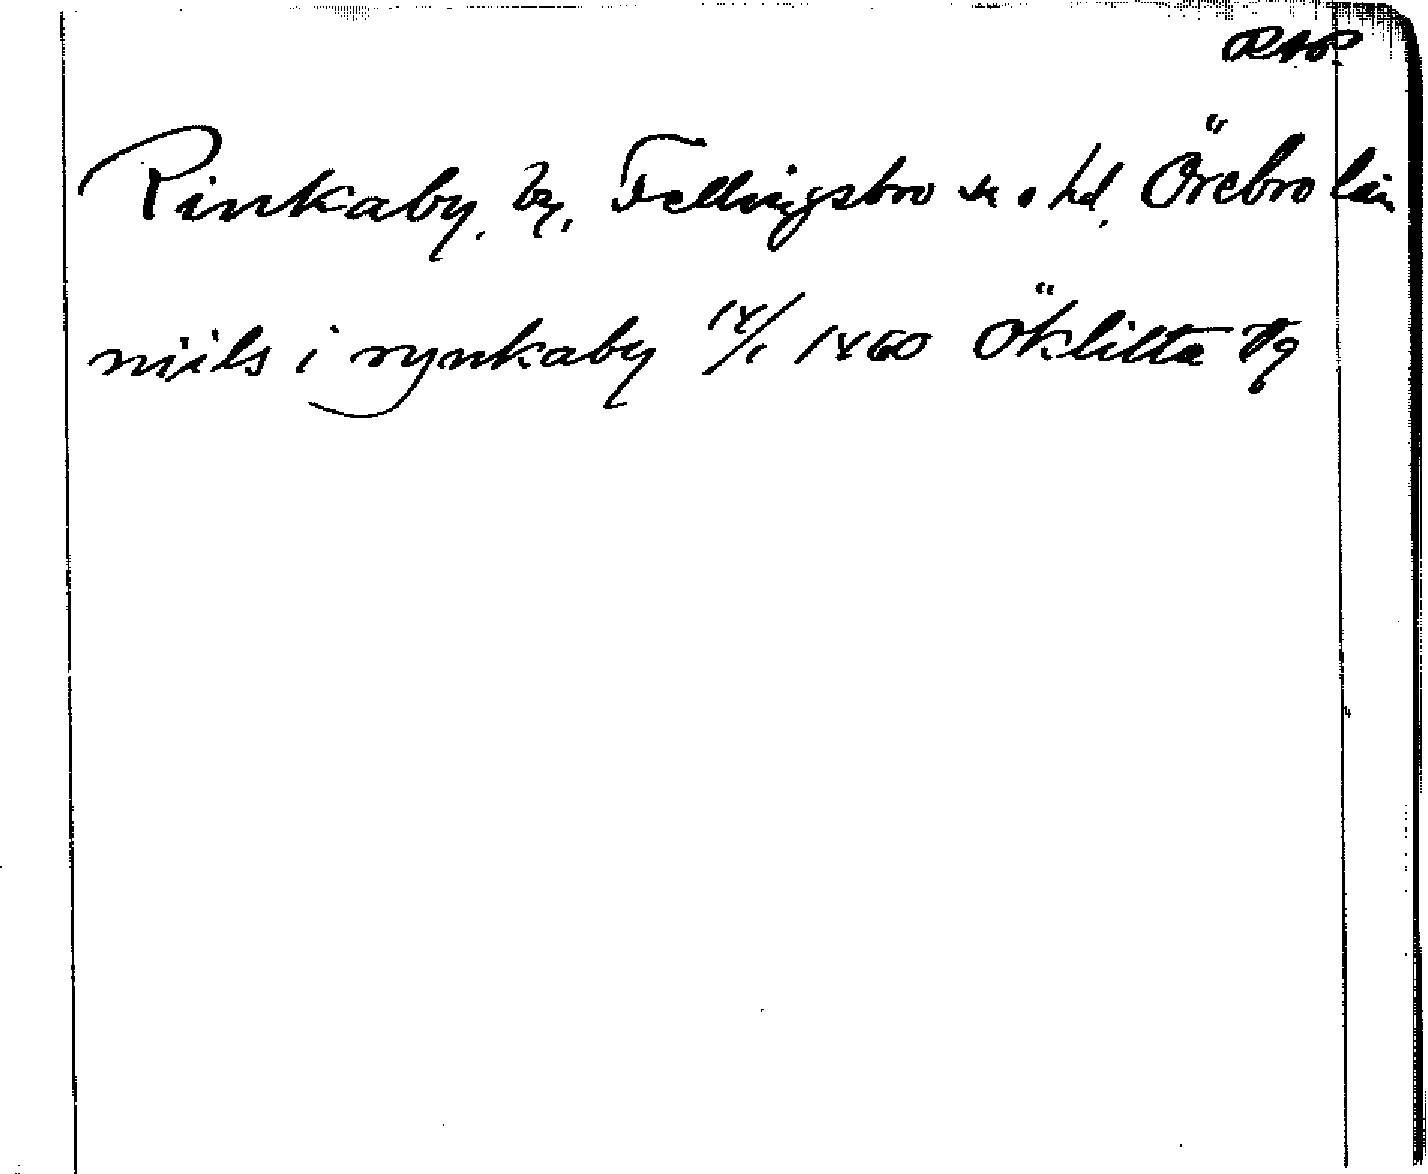 RAP.
Rinkaby, by, Fellingsbro sn o hd, Örebro län
niils i rynkaby 14/1 1460 Öklitta